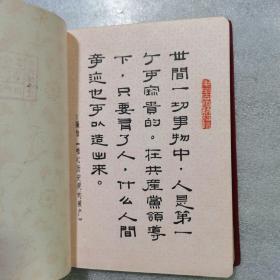 世間一切事物中，人是第一
个可寶貴的。在共産黨領導
下，只要有了人，什么人間
奇迹也可以造出來。